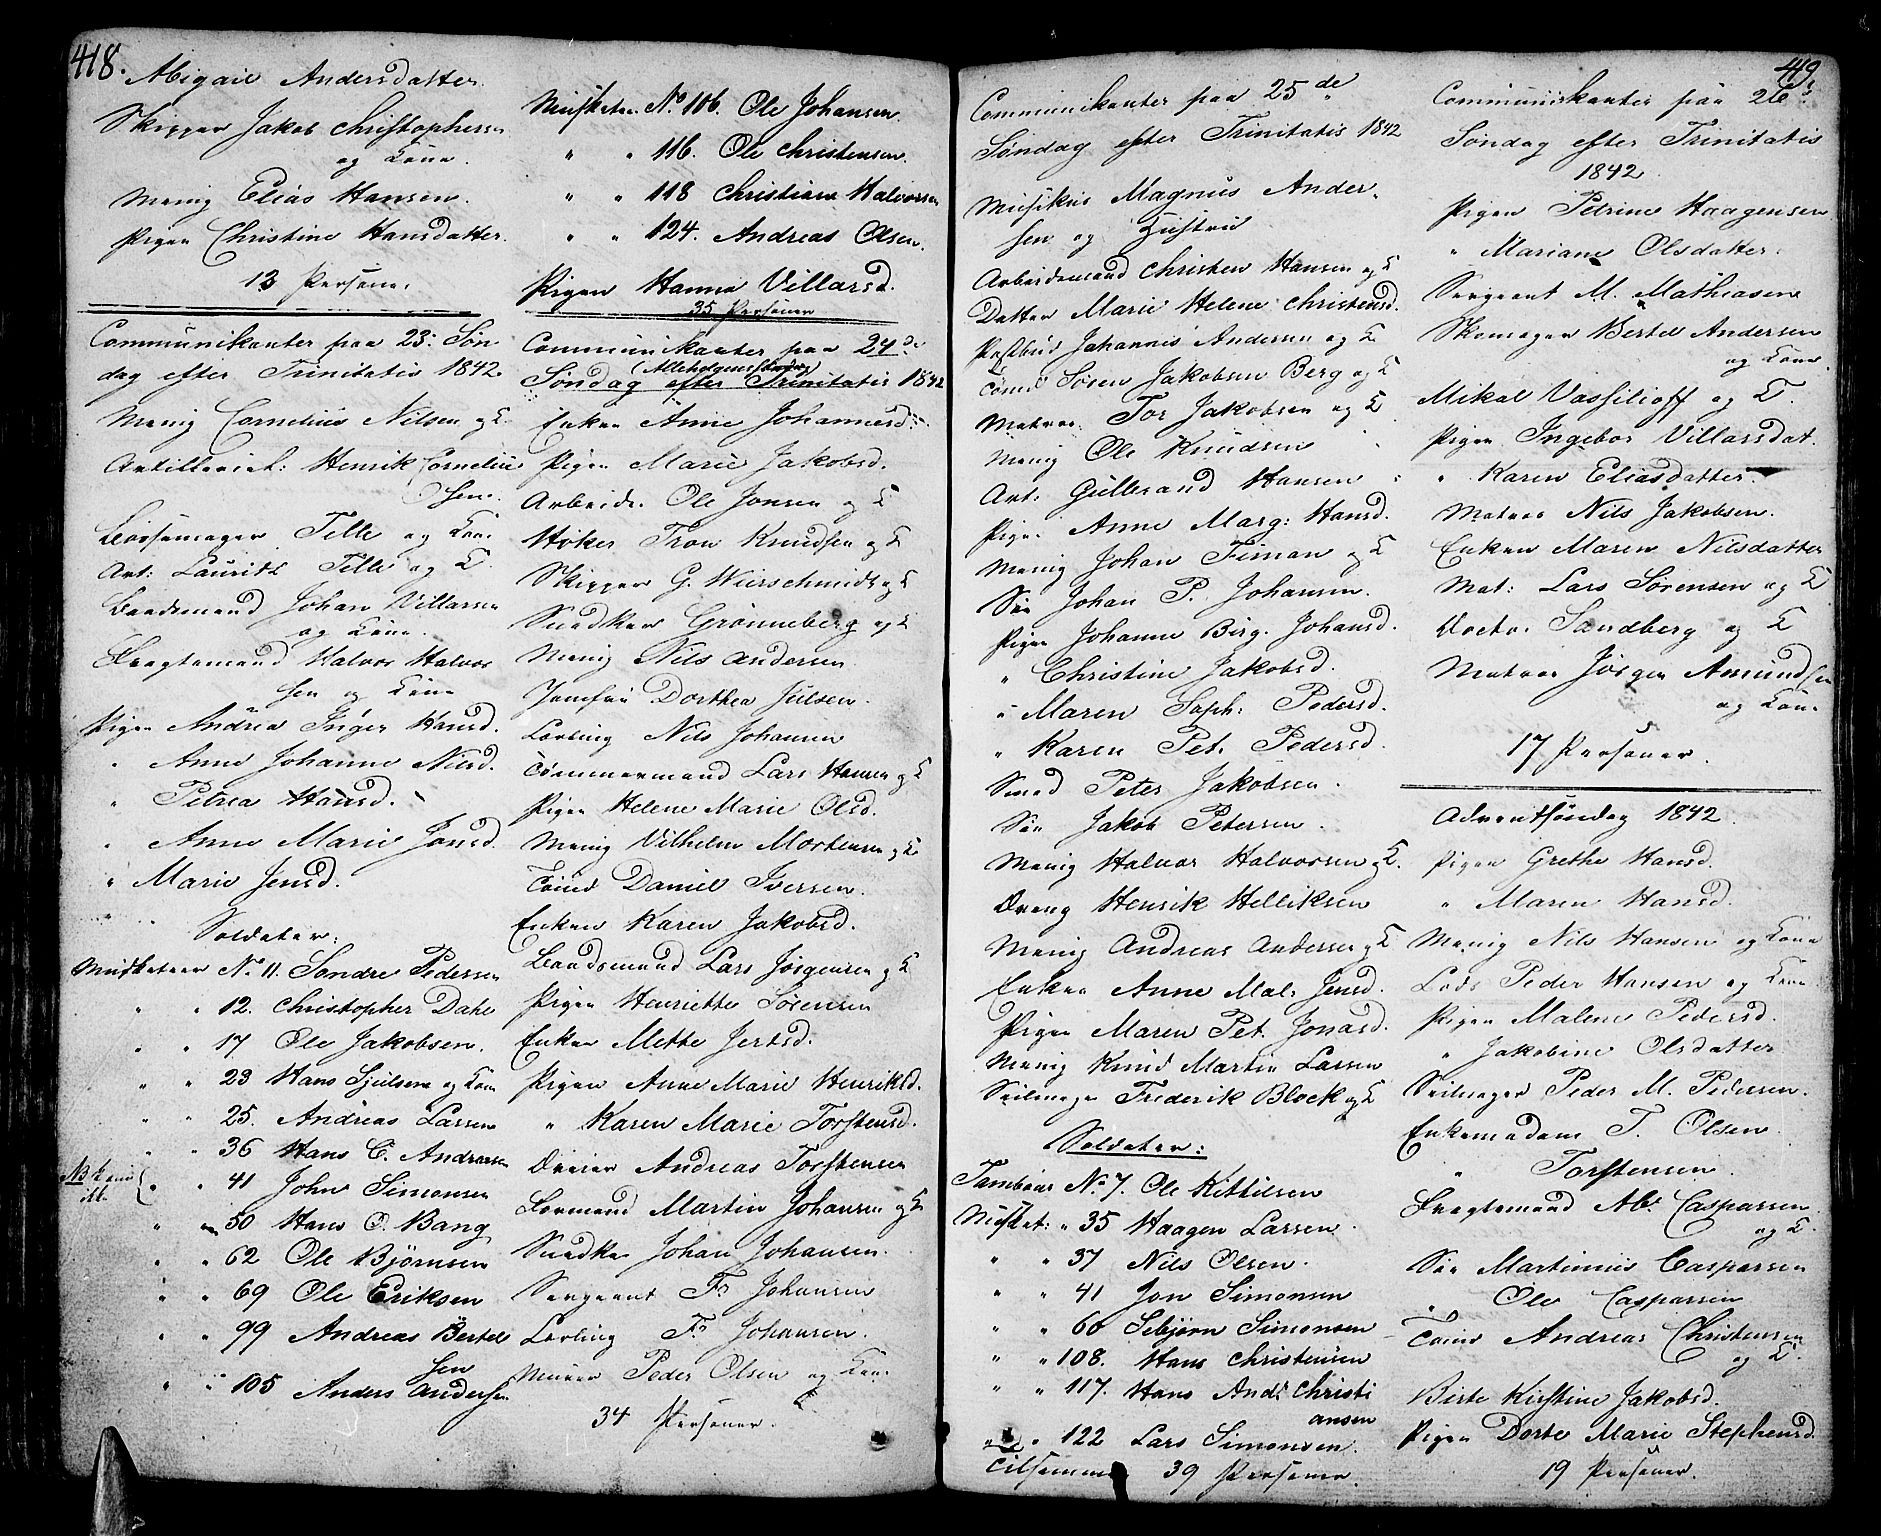 418.
Abigael Andersdatter.
Skipper Jakob Christophersen
og Kone.
Menig Elias Hansen.
Pigen Christine Hansdatter.
13 Personer.
Communikanter paa 23: Søn
dag efter Trinitatis 1842.
Menig Cornelius Nilsen og K.
Artillerist: Henrik Cornelius
sen.
Bøssemager Telle og Kone
Art: Lauritz Telle og K.
Baadsmand Johan Villarsen
og Kone.
Fragtemand Halvor Halvor
sen og Kone
Pigen Andrea Inger Hansd.
" Anne Johanne Nilsd.
" Petrea Hansd.
" Anne Marie Jonsd.
" Marie Jensd.
Soldater:
Musketeer No 11. Sondre Pedersen
" " 12. Christopher Dahl
" " 17 Ole Jakobsen.
" " 23 Hans Sjulsen og Kone
" " 25. Andreas Larsen
" " 36 Hans C. Andersen
NB " " 41 John Simonsen
" " 50 Hans O. Bang
" " 62 Ole Bjørnsen
" " 69 Ole Eriksen
" " 99 Andreas Bertel
sen
" " 105 Anders Andersen
Musketeer No 106. Ole Johansen
" " 116. Ole Christensen.
" " 118 Christian Halvorsen
" " 124. Andreas Olsen.
Pigen Hanna Villarsd.
35 Personer
Communikanter paa 24de
(Allehelgensdag)
Søndag efter Trinitatis 1842
Enken Anne Johannesd.
Pigen Marie Jakobsd.
Arbeids. Ole Jonsen og K
Høker Tron Knudsen og K
Skipper G. Wurschmidt og K
Snedker Grønneberg og K
Menig Nils Andersen
Jomfru Dorthea Julsen.
Lærling Nils Johansen
Tømmermand Lars Hansen og K
Pigen Helene Marie Olsd.
Menig Vilhelm Mortensen og K
Tømd Daniel Iversen.
Enken Karen Jakobsd.
Baadsmand Lars Jørgensen og K
Pigen Henriette Sørensen
Enken Mette Jertsd.
Pigen Anne Marie Henriksd.
" Karen Marie Torstensd.
Dreier Andreas Torstensen
Formand Martin Johansen og K
Snedker Johan Johansen.
Sergeant Fr Johansen
Lærling Fr Johansen.
Murer Peder Olsen og Kone
34 Personer.
419.
Communikanter paa 25de
Søndag efter Trinitatis 1842
Musikus Magnus Ander-
sen og Hustru
Arbeidsmand Christen Hansen og K
Datter Marie Helene Christensd.
Postbud Johannes Andersen og K
Tømd Søren Jakobsen Berg og K
Matros Tor Jakobsen og K
Menig Ole Knudsen
Art: Gulbrand Hansen
Pigen Anne Marg: Hansd.
Menig Johan Timan og K
Søn Johan P. Johansen.
Pigen Johanne Birg. Johansd.
" Christine Jakobsd.
" Maren Soph: Pedersd.
" Karen Pet. Pedersd.
Smed Peter Jakobsen.
Søn Jakob Petersen.
Menig Halvor Halvorsen og K.
Dreng Henrik Helliksen
Menig Andreas Andersen og K
Enken Anne Mal: Jensd.
Pigen Maren Pet. Jonasd.
Menig Knud Martin Larsen
Seilmager Frederik Block og K
Soldater:
Tambour No 7. Ole Kittilsen
Musket: " 35 Haagen Larsen.
" " 37 Nils Olsen.
" " 41 Jon Simonsen
" " 60 Sebjørn Simonsen
" " 108. Hans Christensen
" " 117. Hans And: Christi
ansen
" " 122 Lars Simonsen.
Tilsammen 39 Personer.
Communikanter paa 26de
Søndag efter Trinitatis
1842.
Pigen Petrine Haagensen
" Mariane Olsdatter.
Sergeant M. Mathiasen
Skomager Bertel Andersen
og Kone
Mikal Vassilioff og K.
Pigen Ingebor Villarsdat.
" Karen Eliasdatter.
Matros Nils Jakobsen.
Enken Maren Nilsdatter
Mat: Lars Sørensen og K
Doctor Sandberg og K
Matros Jørgen Amundsen
og Kone
17 Personer.
Adventsøndag 1842.
Pigen Grethe Hansd.
" Maren Hansd.
Menig Nils Hansen og Kone
Lods Peder Hansen og Kone
Pigen Malene Pedersd.
" Jakobine Olsdatter
Seilmager Peder M. Pedersen.
Enkemadam T. Olsen
" Torstensen.
Fragtemand Ab. Caspersen
og K.
Søn Martinius Caspersen
" Ole Caspersen
Tømd Andreas Christensen
og K.
Birte Kirstine Jakobsd.
Pigen Dorte Marie Stephensd.
19 Personer.